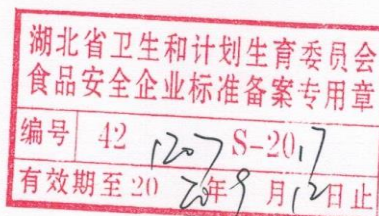 湖北省卫生和计划生育委员会
食品安全企业标准备案专用章
编号 42 1207 S-2017
有效期至20 20年9月12日止